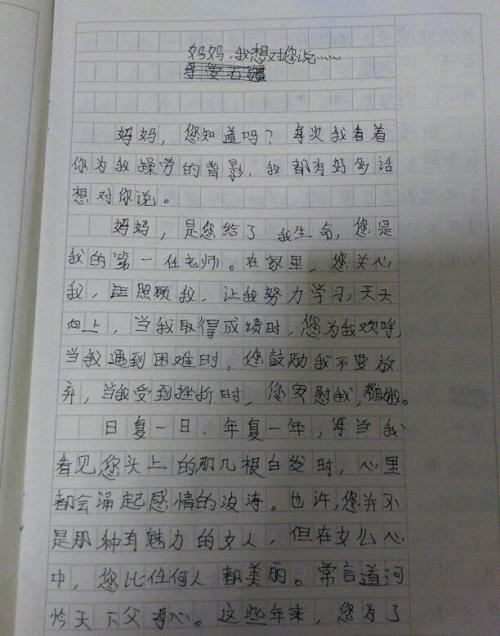 妈妈，我想对您说……
妈妈，您知道吗？每次我看着
你为我操劳的背影，我都有好多话
想对你说。
妈妈，是您给了我生命，您是
我的第一任老师。在家里，您关心
我，照顾我，让我努力学习，天天
向上，当我取得成绩时，您为我欢呼，
当我遇到困难时，您鼓励我不要放
弃，当我受到挫折时，您安慰我，帮助我。
日复一日，年复一年，每当我
看见您头上的那几根白发时，心里
都会涌起感情的波涛。也许，您并不
是那种有魅力的女人，但在女儿心
中，您比任何人都美丽。常言道河
怜天下父母心。这些年来，您为了